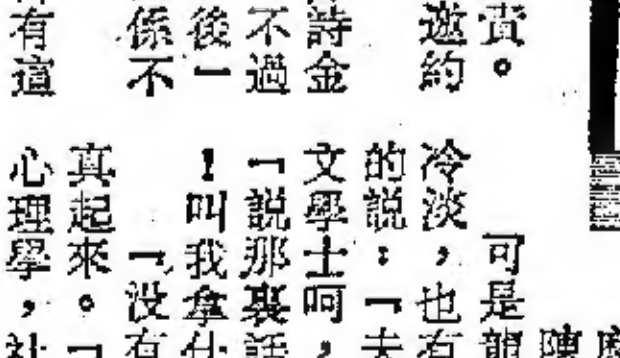 邀約
詩金
不過
後一
係不
有這
可是龍
冷淡，也有
的説：「夫
文學士呵，
「説那裏話
！叫我拿什
「没有
真起來。「
心理學，社